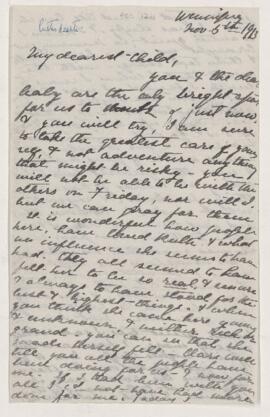 Winnipeg
Nov. 5th 1913
My dearest Child,
you & the dear
baby are the only bright spot
for us to think of just now,
& you will try, I am sure
to take the greatest care of your
self & not adventure anything
that might be risky - you
will not be able to be with the
others on Friday, nor will I.
but we can pray for them
It is wonderful how people
here, have loved Ruth, & what
an influence she seems to have
had. they all seemed to have
felt her to be so real & sincere
& always to have stood for the
best & highest things. & when
you think she came here young
& unknown, &
grand - you can in that she
made herself felt. Clare will
tell you all the people have
been doing for us - & now for
me. If I had been with you
all I not have had more
done for me. Today I